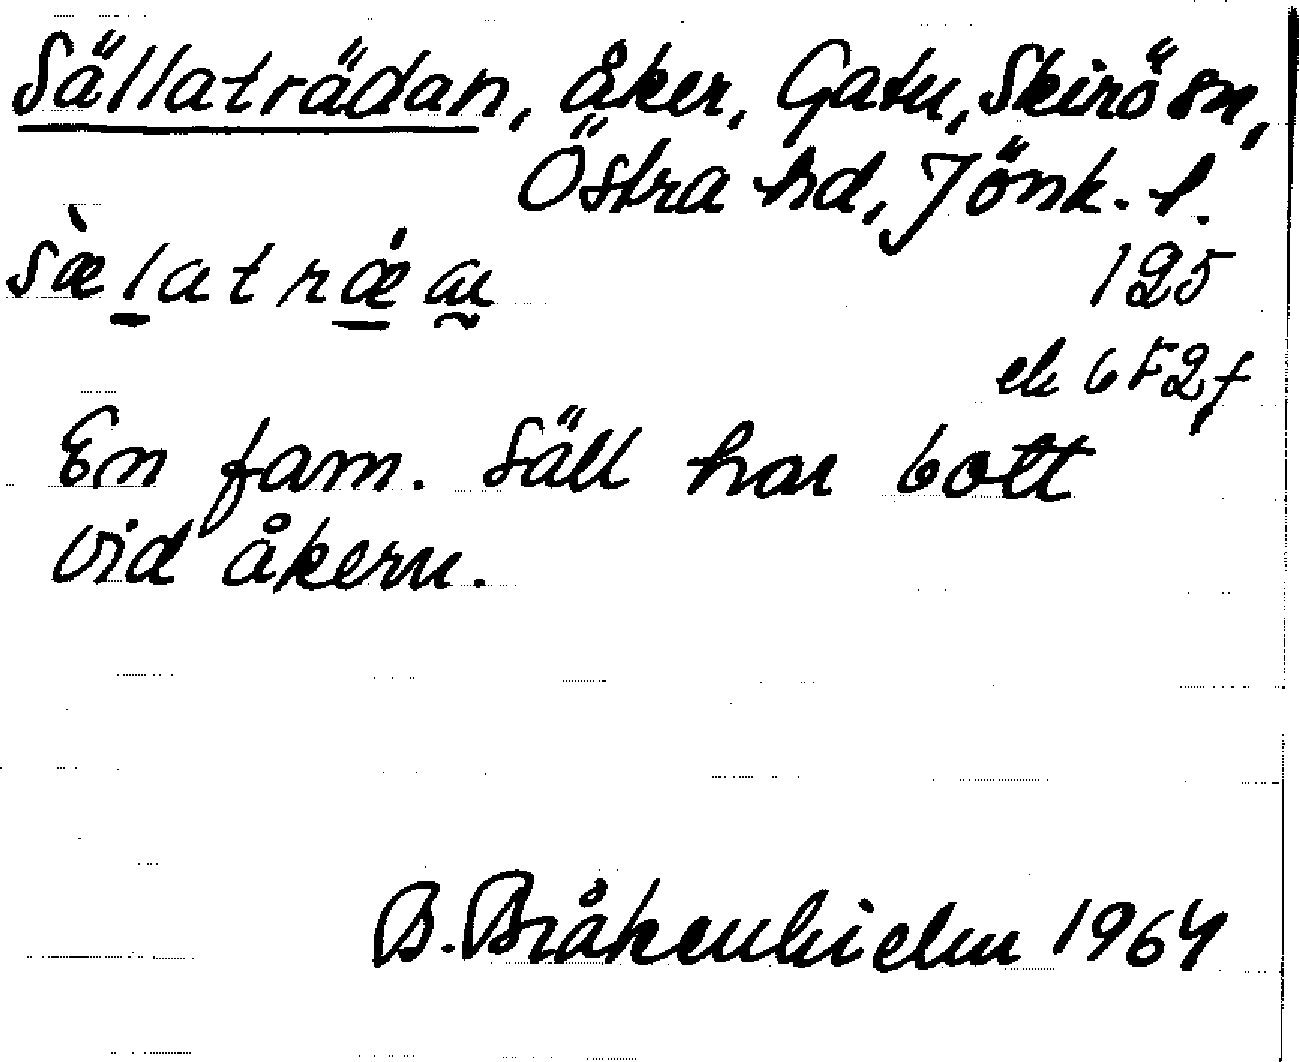 Sällaträdan, åker, Gatu, Skirö sn,
Östra hd, Jönk. l.
sæ̀latrǽau
125
ek 6F2f
En fam. Säll har bott
vid åkern.
B. Bråkenhielm 1964